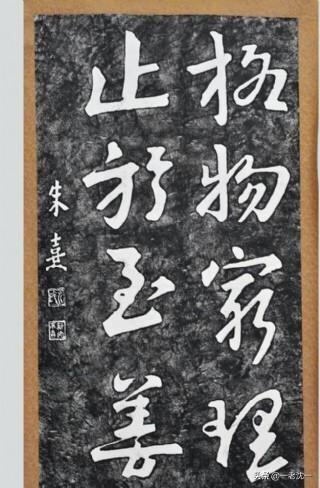 格物窮理
止於至善
朱熹
头条@一老沈一